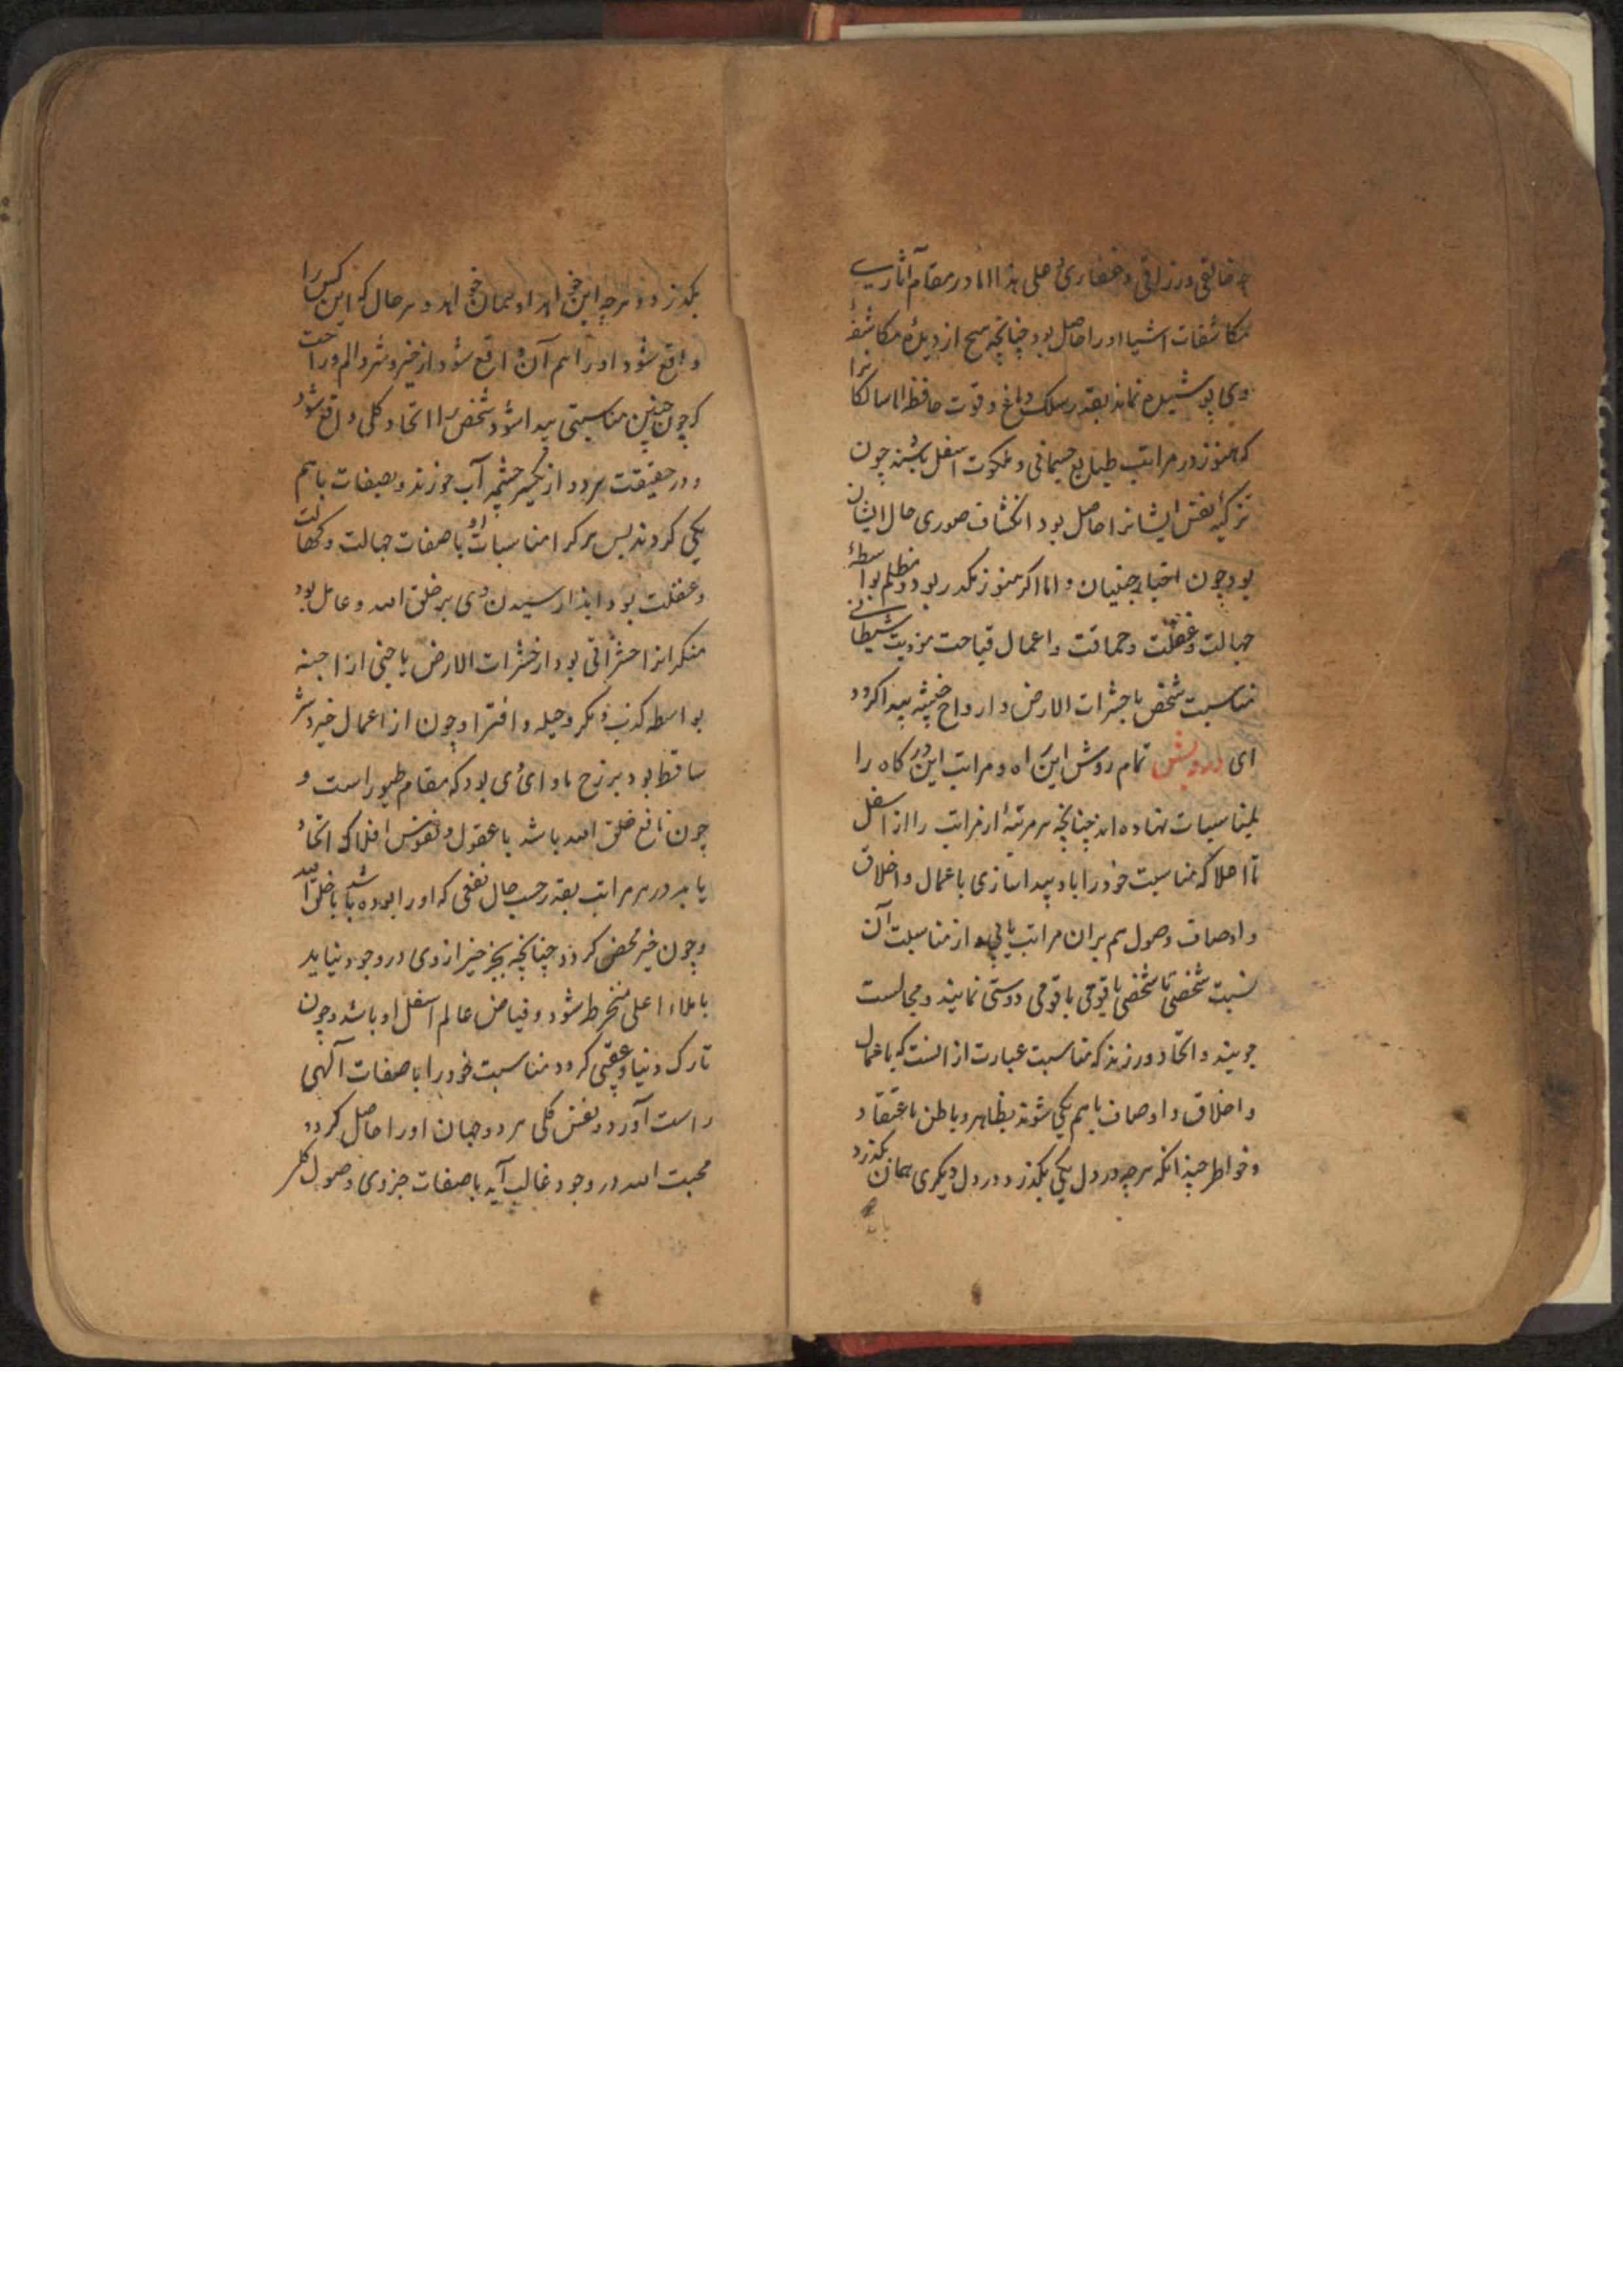 چه خالقی و رزاقی و غفاری و علی هذا اما در مقام آثاریت
مکاشفات اشیا او را حاصل بود چنانچه هیچ از دیدهٔ مکاشفهٔ
وی پوشیده نماند بقدر سلک دماغ و قوت حافظه اما سالکانرا
که هنوز در مراتب طبایع جسمانی و ملکوت اسفل باشند چون
تزکیهٔ نفس ایشانرا حاصل بود انکشاف صوری حال ایشان
بود چون اخبار جنیان و اما اکر هنوز مکدر بود و مظلم بواسطهٔ
جهالت و غفلت و حماقت و اعمال قباحت شیطانی
مناسبت شخص با حشرات الارض و ارواح خبیثه پیدا کردد
ای درویش تمام روش این راه و مراتب این درکاه را
بمناسبات نهاده اند چنانچه هر مرتبهٔ از مراتب را از اسفل
تا اعلا که مناسبت خود را باو پیدا سازی باعمال و اخلاق
و اوصاف وصول هم بران مراتب یابی و از مناسبت آن
نسبت شخصی با شخصی یا قومی با قومی دوستی نمایند و مجالست
جویند و اتحاد ورزند که مناسبت عبارت از انست که باعمال
و اخلاق و اوصاف با هم یکی شوند بظاهر و باطن باعتقاد
و خواطر چندانکه هرچه در دل یکی بکذرد در دل دیکری همان بکذرد
بکذرد و هرچه این خواهد او همان خواهد و هر حال که این کس را
واقع شود او را هم آن واقع شود از خیر و شر و الم و راحت
که چون چنین مناسبتی پیدا شود شخص را اتحاد کلی واقع شود
و در حقیقت هر دو از یک سرچشمه آب خورند و بصفات با هم
یکی کردند پس هر کرا مناسبات او با صفات جهالت و
و غفلت بود و ایذا رسیدن وی بر خلق الله و عامل بود
منکرانرا حشراتی بود از حشرات الارض یا جنی از اجنه
بواسطه کذب و مکر و حیله و افترا و چون از اعمال خیر و شر
ساقط بود برزخ ماوای وی بود که مقام طیور است و
چون نافع خلق الله باشد با عقول و نفوس افلاک اتحاد
یابد در هر مراتب بقدر حسب حال نفعی که او را بوده باشد با خلق الله
و چون خیر محض کردد چنانچه بجز خیر از وی در وجود نیاید
با ملاء اعلی منخرط شود و فیاض عالم اسفل او باشد و چون
تارک دنیا و عقبی کردد مناسبت خود را با صفات آلهی
راست آورد و نفس کلی هر دو جهان او را حاصل کردد
محبت الله در وجود غالب آید با صفات جزوی وصول کلی